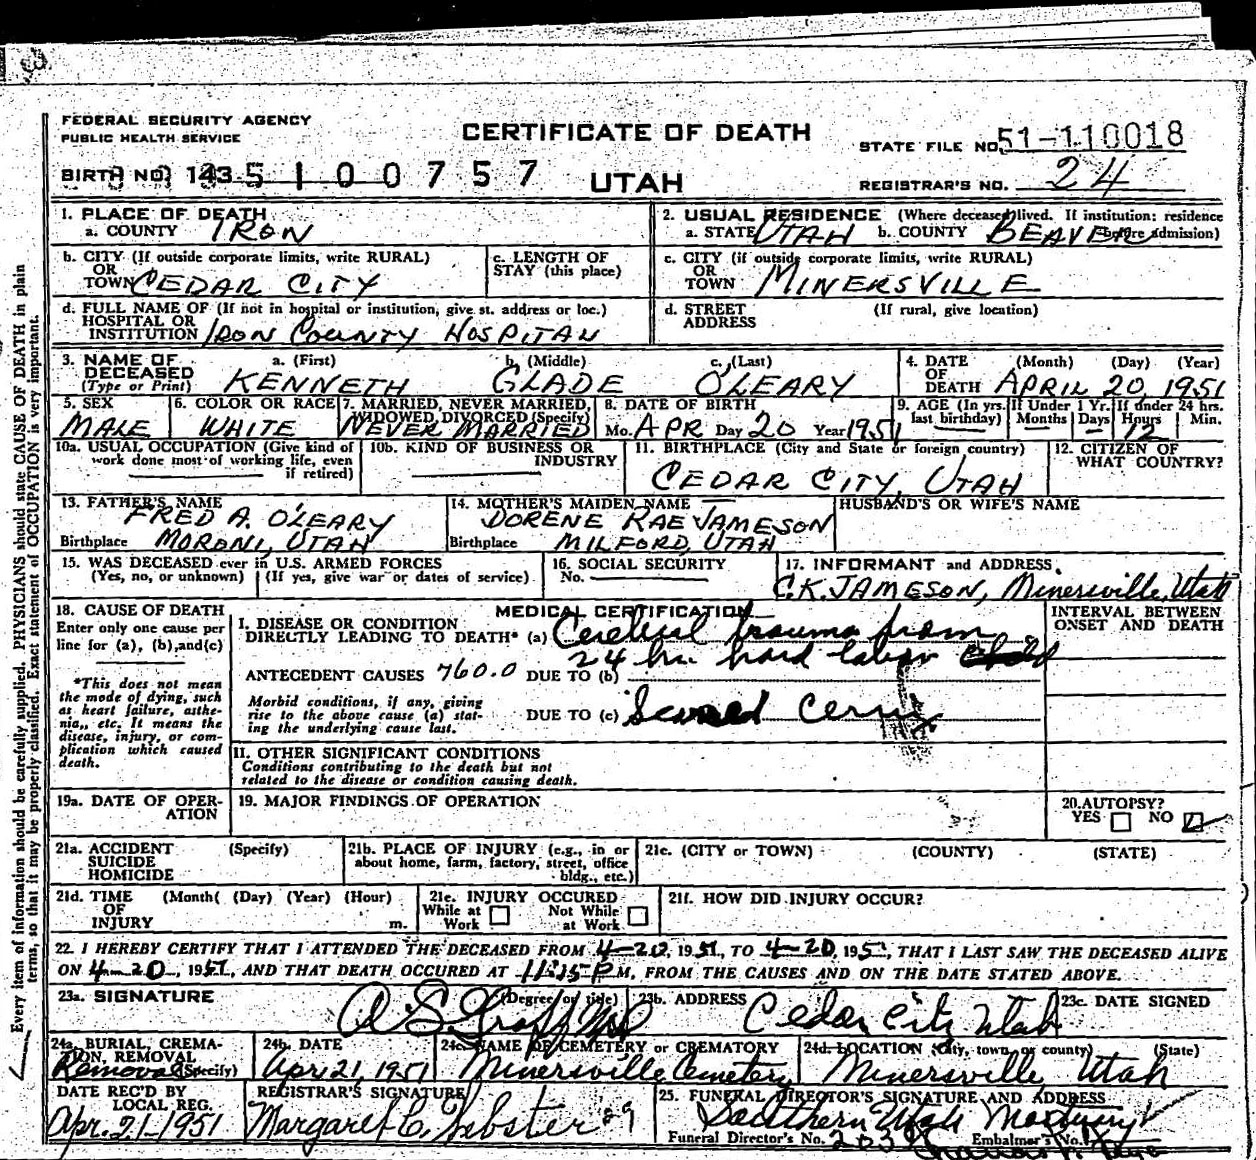 FEDERAL SECURITY AGENCY
PUBLIC HEALTH SERVICE
CERTIFICATE OF DEATH
STATE FILE NO. 51-110018
BIRTH NO. 143 5 1 0 0 7 5 7 UTAH
REGISTRAR'S NO. 24
1. PLACE OF DEATH
a. COUNTY IRON
2. USUAL RESIDENCE (Where deceased lived. If institution: residence before admission)
a. STATE UTAH b. COUNTY BEAVER
b. CITY (If outside corporate limits, write RURAL)
OR
TOWN CEDAR CITY
c. LENGTH OF
STAY (this place)
c. CITY (if outside corporate limits, write RURAL)
OR
TOWN MINERSVILLE
d. FULL NAME OF (If not in hospital or institution, give st. address or loc.)
HOSPITAL OR
INSTITUTION IRON COUNTY HOSPITAL
d. STREET (If rural, give location)
ADDRESS
3. NAME OF a. (First) b. (Middle) c. (Last)
DECEASED
(Type or Print) KENNETH GLADE O'LEARY
4. DATE (Month) (Day) (Year)
OF
DEATH APRIL 20, 1951
5. SEX
MALE
6. COLOR OR RACE
WHITE
7. MARRIED, NEVER MARRIED,
WIDOWED, DIVORCED (Specify)
NEVER MARRIED
8. DATE OF BIRTH
Mo. APR Day 20 Year 1951
9. AGE (In yrs. last birthday)
If Under 1 Yr.
Months Days
If under 24 hrs.
Hours Min.
12
10a. USUAL OCCUPATION (Give kind of
work done most of working life, even
if retired)
10b. KIND OF BUSINESS OR
INDUSTRY
11. BIRTHPLACE (City and State or foreign country)
CEDAR CITY, UTAH
12. CITIZEN OF
WHAT COUNTRY?
13. FATHER'S NAME
FRED A. O'LEARY
Birthplace MORONI, UTAH
14. MOTHER'S MAIDEN NAME
DORENE RAE JAMESON
Birthplace MILFORD, UTAH
HUSBAND'S OR WIFE'S NAME
15. WAS DECEASED ever in U.S. ARMED FORCES
(Yes, no, or unknown) (If yes, give war or dates of service)
16. SOCIAL SECURITY
No.
17. INFORMANT and ADDRESS
C.K. JAMESON, Minersville, Utah
18. CAUSE OF DEATH
Enter only one cause per
line for (a), (b), and (c)
*This does not mean
the mode of dying, such
as heart failure, asthe-
nia, etc. It means the
disease, injury, or com-
plication which caused
death.
MEDICAL CERTIFICATION
I. DISEASE OR CONDITION
DIRECTLY LEADING TO DEATH* (a) Cerebral trauma from
24 hr. hard labor
ANTECEDENT CAUSES 760.0 DUE TO (b)
Morbid conditions, if any, giving
rise to the above cause (a) stat-
ing the underlying cause last.
DUE TO (c)
INTERVAL BETWEEN
ONSET AND DEATH
II. OTHER SIGNIFICANT CONDITIONS
Conditions contributing to the death but not
related to the disease or condition causing death.
19a. DATE OF OPER-
ATION
19. MAJOR FINDINGS OF OPERATION
20. AUTOPSY?
YES NO
21a. ACCIDENT (Specify)
SUICIDE
HOMICIDE
21b. PLACE OF INJURY (e.g., in or
about home, farm, factory, street, office
bldg., etc.)
21c. (CITY or TOWN) (COUNTY) (STATE)
21d. TIME (Month( (Day) (Year) (Hour)
OF
INJURY m.
21e. INJURY OCCURED
While at Work Not While at Work
21f. HOW DID INJURY OCCUR?
22. I HEREBY CERTIFY THAT I ATTENDED THE DECEASED FROM 4-20, 1951, TO 4-20, 1951, THAT I LAST SAW THE DECEASED ALIVE
ON 4-20, 1951, AND THAT DEATH OCCURED AT 11:15 P M, FROM THE CAUSES AND ON THE DATE STATED ABOVE.
23a. SIGNATURE (Degree or title)
A. S. Graff MD
23b. ADDRESS
Cedar City Utah
23c. DATE SIGNED
24a. BURIAL, CREMA-
TION, REMOVAL
(Specify) Removal
24b. DATE
Apr. 21, 1951
24c. NAME OF CEMETERY or CREMATORY
Minersville Cemetery
24d. LOCATION (City, town, or county) (State)
Minersville, Utah
DATE REC'D BY
LOCAL REG.
Apr. 21-1951
REGISTRAR'S SIGNATURE
Margaret C. Webster
25. FUNERAL DIRECTOR'S SIGNATURE AND ADDRESS
Southern Utah Mortuary
Funeral Director's No. Embalmer's No.
Every item of information should be carefully supplied. PHYSICIANS should state CAUSE OF DEATH in plain
terms, so that it may be properly classified. Exact statement of OCCUPATION is very important.